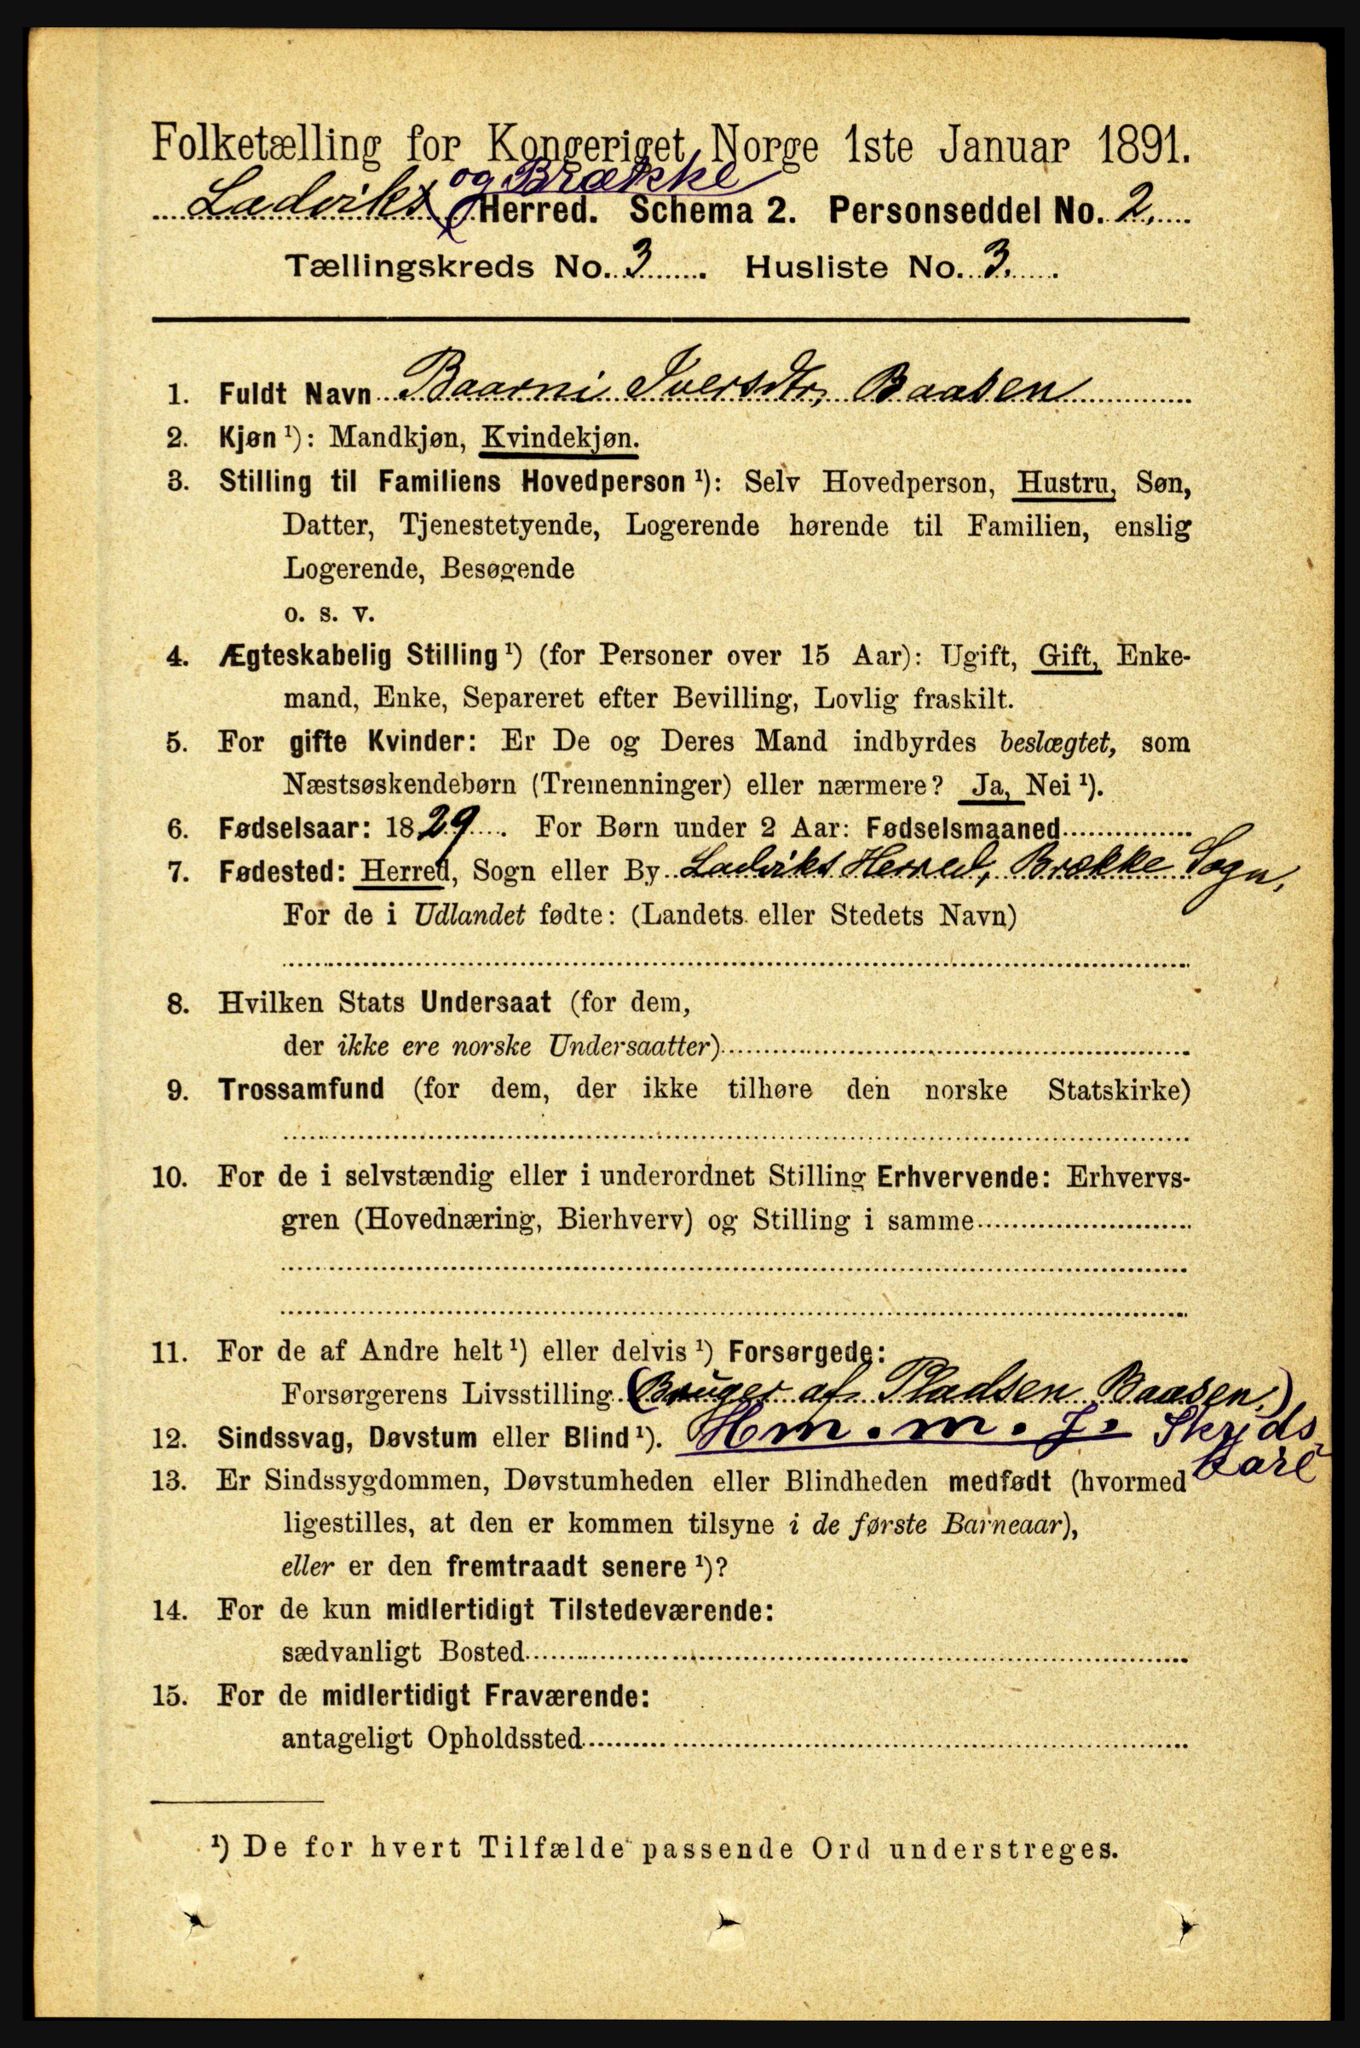 Folketælling for Kongeriget Norge 1ste Januar 1891.
og Brække
Ladviks Herred. Schema 2. Personseddel No. 2.
Tællingskreds No. 3 Husliste No. 3.
1. Fuldt Navn Baarni Iversdtr, Baasen
2. Kjøn ¹): Mandkjøn, Kvindekjøn.
3. Stilling til Familiens Hovedperson ¹): Selv Hovedperson, Hustru, Søn,
Datter, Tjenestetyende, Logerende hørende til Familien, enslig
Logerende, Besøgende
o. s. v.
4. Ægteskabelig Stilling ¹) (for Personer over 15 Aar): Ugift, Gift, Enke-
mand, Enke, Separeret efter Bevilling, Lovlig fraskilt.
5. For gifte Kvinder: Er De og Deres Mand indbyrdes beslægtet, som
Næstsøskendebørn (Tremenninger) eller nærmere? Ja, Nei ¹).
6. Fødselsaar: 1829. For Børn under 2 Aar: Fødselsmaaned
7. Fødested: Herred, Sogn eller By Ladviks Herred, Brække Sogn,
For de i Udlandet fødte: (Landets eller Stedets Navn)
8. Hvilken Stats Undersaat (for dem,
der ikke ere norske Undersaatter)
9. Trossamfund (for dem, der ikke tilhøre den norske Statskirke)
10. For de i selvstændig eller i underordnet Stilling Erhvervende: Erhvervs-
gren (Hovednæring, Bierhverv) og Stilling i samme
11. For de af Andre helt ¹) eller delvis ¹) Forsørgede:
Forsørgerens Livsstilling (Bruger af Pladsen Baasen.)
12. Sindssvag, Døvstum eller Blind ¹). Hm. m. J.
13. Er Sindssygdommen, Døvstumheden eller Blindheden medfødt (hvormed
ligestilles, at den er kommen tilsyne i de første Barneaar),
eller er den fremtraadt senere ¹)?
14. For de kun midlertidigt Tilstedeværende:
sædvanligt Bosted
15. For de midlertidigt Fraværende:
antageligt Opholdssted
¹) De for hvert Tilfælde passende Ord understreges.